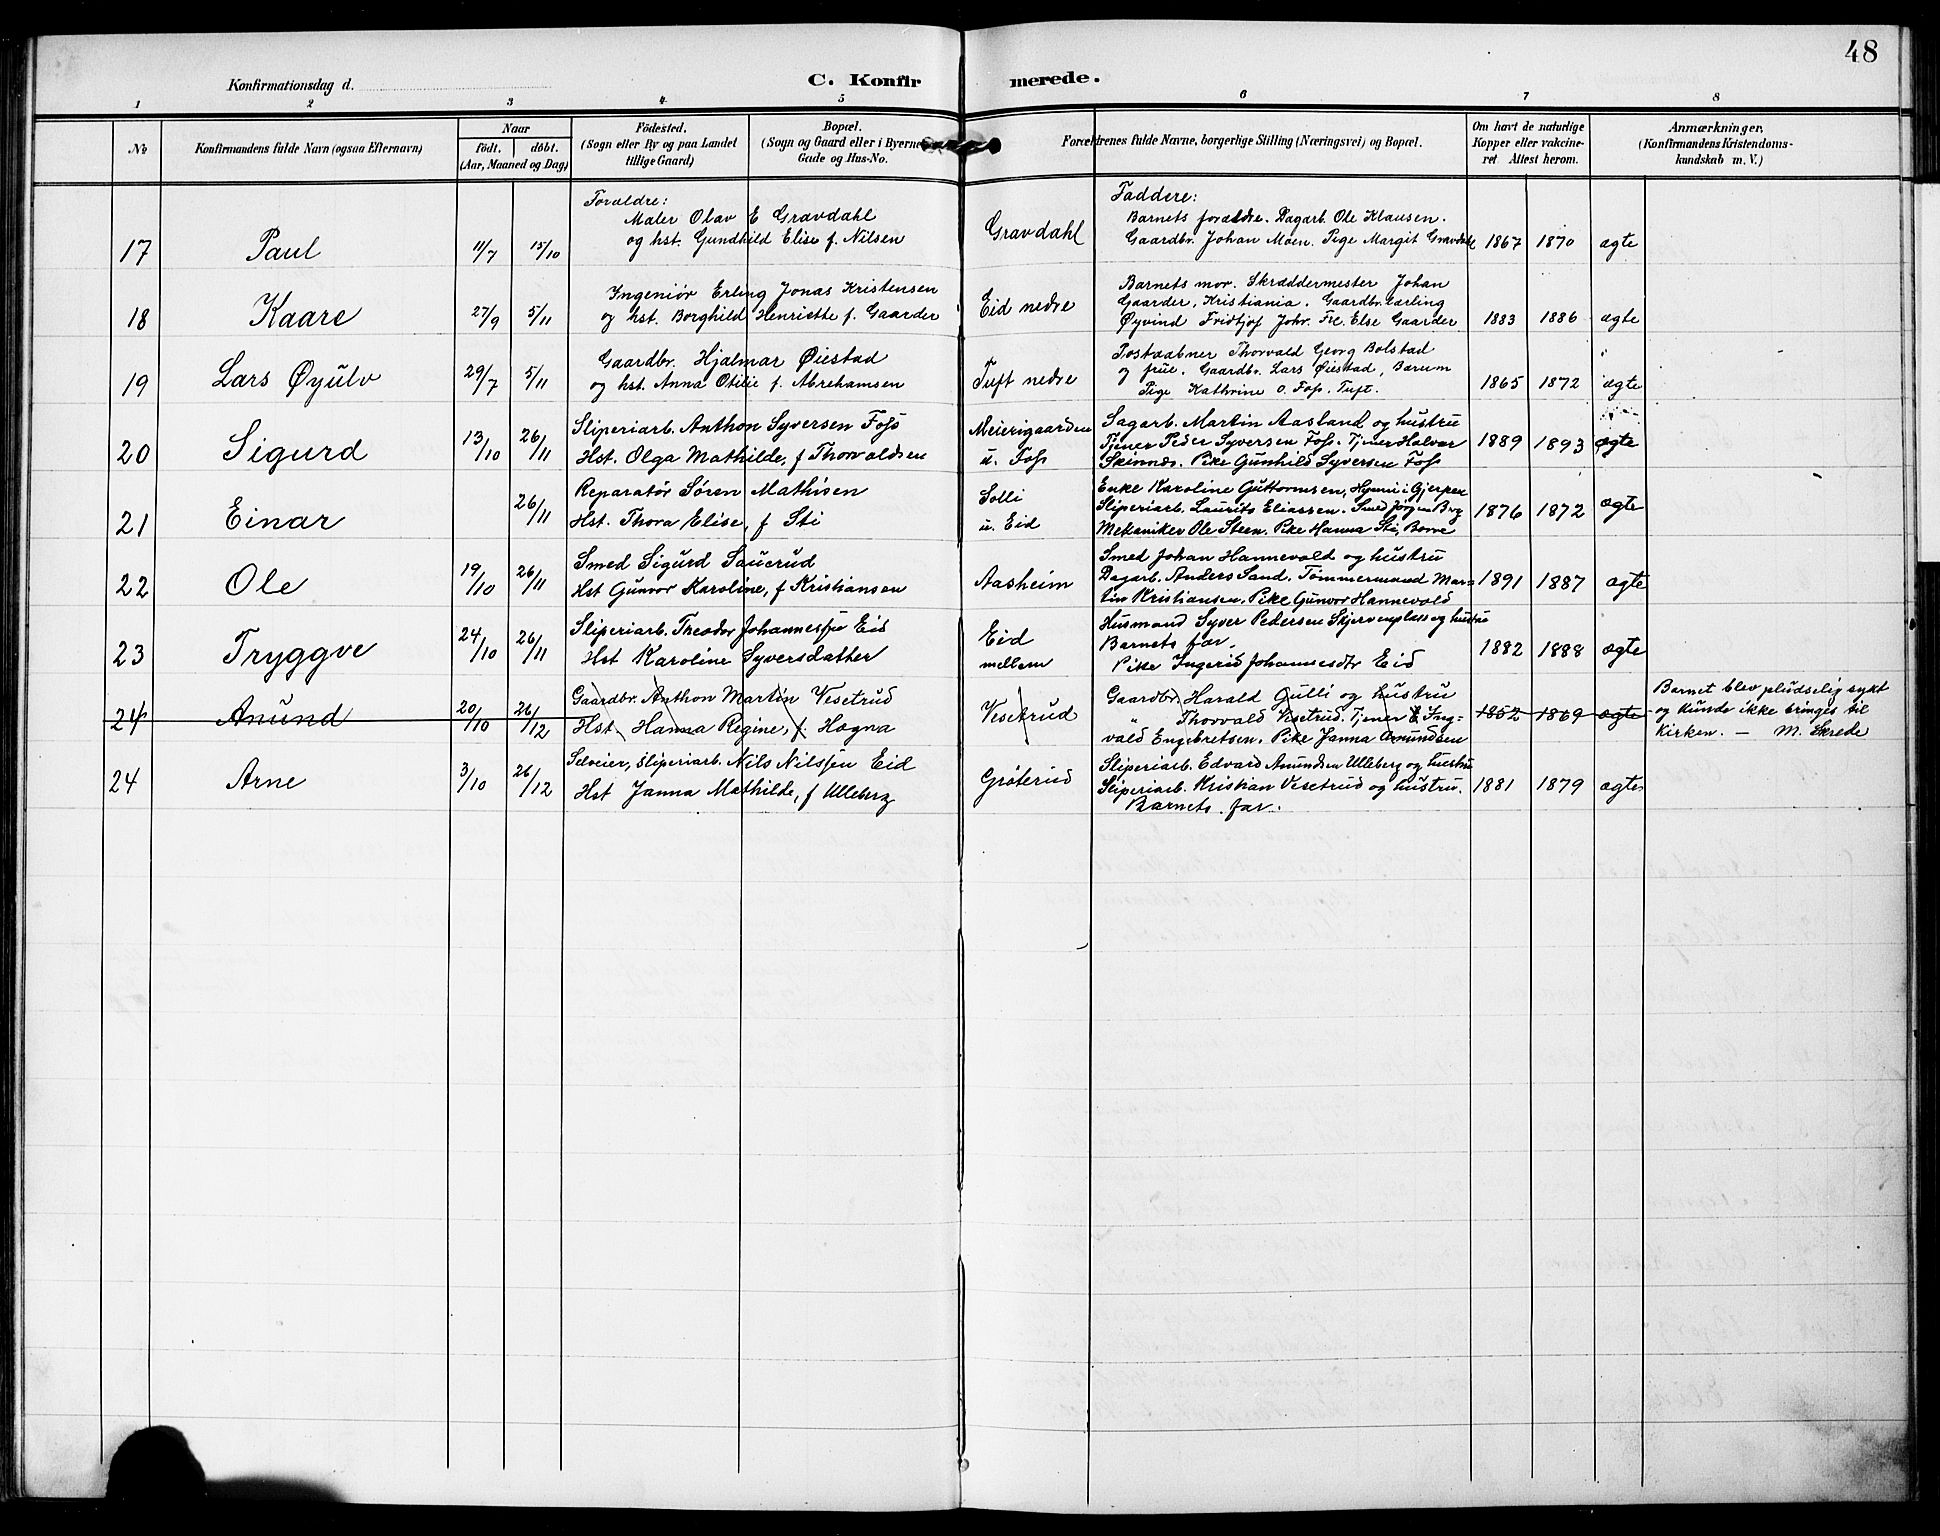 48
Konfirmationsdag d.
C. Konfir merede.
1 2 3 4 5 6 7 8
No
Konfirmandens fulde Navn (ogsaa Efternavn)
Naar
födt. döbt.
(Aar, Maaned og Dag)
Födested.
(Sogn eller By og paa Landet
tillige Gaard)
Bopæl.
(Sogn og Gaard eller i Byerne
Gade og Hus-No.
Forældrenes fulde Navne, borgerlige Stilling (Næringsvei) og Bopæl.
Om havt de naturlige
Kopper eller vakcine-
ret Attest herom.
Anmærkninger,
(Konfirmandens Kristendoms-
kundskab m. V.)
Forældre:
Maler Olav E Gravdahl
og hst. Gundhild Elise f. Nilsen
17 Paul 11/7 15/10
Gravdahl
Faddere:
Barnets forældre. Dagarb. Ole Klausen.
Gaardbr. Johan Moen. Pige Margit Gravdahl
1867 1870 ægte
Ingeniör Erling Jonas Kristensen
og hst. Borghild Henriette f. Gaarder
18 Kaare 27/9 5/11
Eid nedre
Barnets mor. Skræddermester Johan
Gaarder, Kristiania. Gaardbr. Carling
Øyvind Fridtjof Johr. Frk. Else Gaarder
1883 1886 ægte
Gaardbr. Hjalmar Øiestad
og hst. Anna Otilie f. Abrehamsen
19 Lars Øyulv 29/7 5/11
Tuft nedre
Postaabner Thorvald Georg Bolstad
og frue. Gaardbr. Lars Øiestad, Bærum
Pige Kathrine O. Foss. Tuft.
1865 1872 ægte
Sliperiarb. Anthon Syversen Foss
Hst. Olga Mathilde, f Thorvaldsen
20 Sigurd 13/10 26/11
Meierigaarden
u. Foss
Sagarb. Martin Aasland og hustru
Tjener Peder Syversen Foss. Tjener Halvor
Skinnæs. Pike Gunhild Syversen Foss
1889 1893 ægte
Reparatør Søren Mathisen
Hst. Thora Elise, f Sti
21 Einar 26/11
Solli
u. Eid
Enke Karoline Guttormsen, i Gjerpen
Sliperiarb. Laurits Eliassen. Smed Jörgen Berg
Mekaniker Ole Steen. Pike Hanna Sti, Borre
1876 1872 ægte
Smed Sigurd Sauerud
Hst Gunvor Karoline, f Kristiansen
22 Ole 19/10 26/11
Aasheim
Smed Johan Hannevold og hustru
Dagarb. Anders Sand. Tömmermand Mar-
tin Kristiansen. Pike Gunvor Hannevold
1891 1887 ægte
Sliperiarb. Theodor Johannessen Eid
Hst Karoline Syversdatter
23 Tryggve 24/10 26/11
Eid
mellem
Husmand Syver Pedersen Skjervenplass og hustru
Barnets far.
Pike Ingerid Johannesdtr Eid
1882 1888 ægte
Gaardbr. Anthon Martin Vesetrud
Hst. Hanna Regine, f. Hogna
24 Anund 20/10 26/12
Vesetrud
Gaardbr. Harald Gulli og hustru
" Thorvald Vesetrud. Tjener E Ing-
vald Engebretsen. Pike Janna Amundsen
1852 1869 ægte
Barnet blev pludselig sykt
og kunde ikke bringes til
kirken. — M. Skrede
Selveier, sliperiarb. Nils Nilssen Eid
Hst Janna Mathilde, f Ulleberg
24 Arne 3/10 26/12
Gröterud
Sliperiarb. Edvard Anundsen Ulleberg og hustru
Sliperiarb. Kristian Vesetrud og hustru.
Barnets far.
1881 1879 ægte